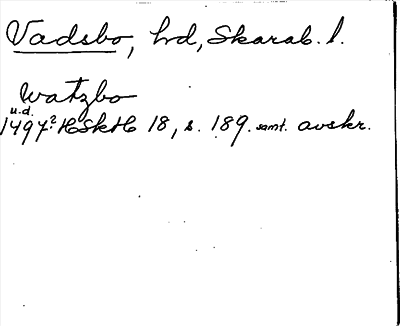 Vadsbo, hd, Skarab. l.
watzbo
u.d.
1497? HSkH 18, s. 189. samt. avskr.